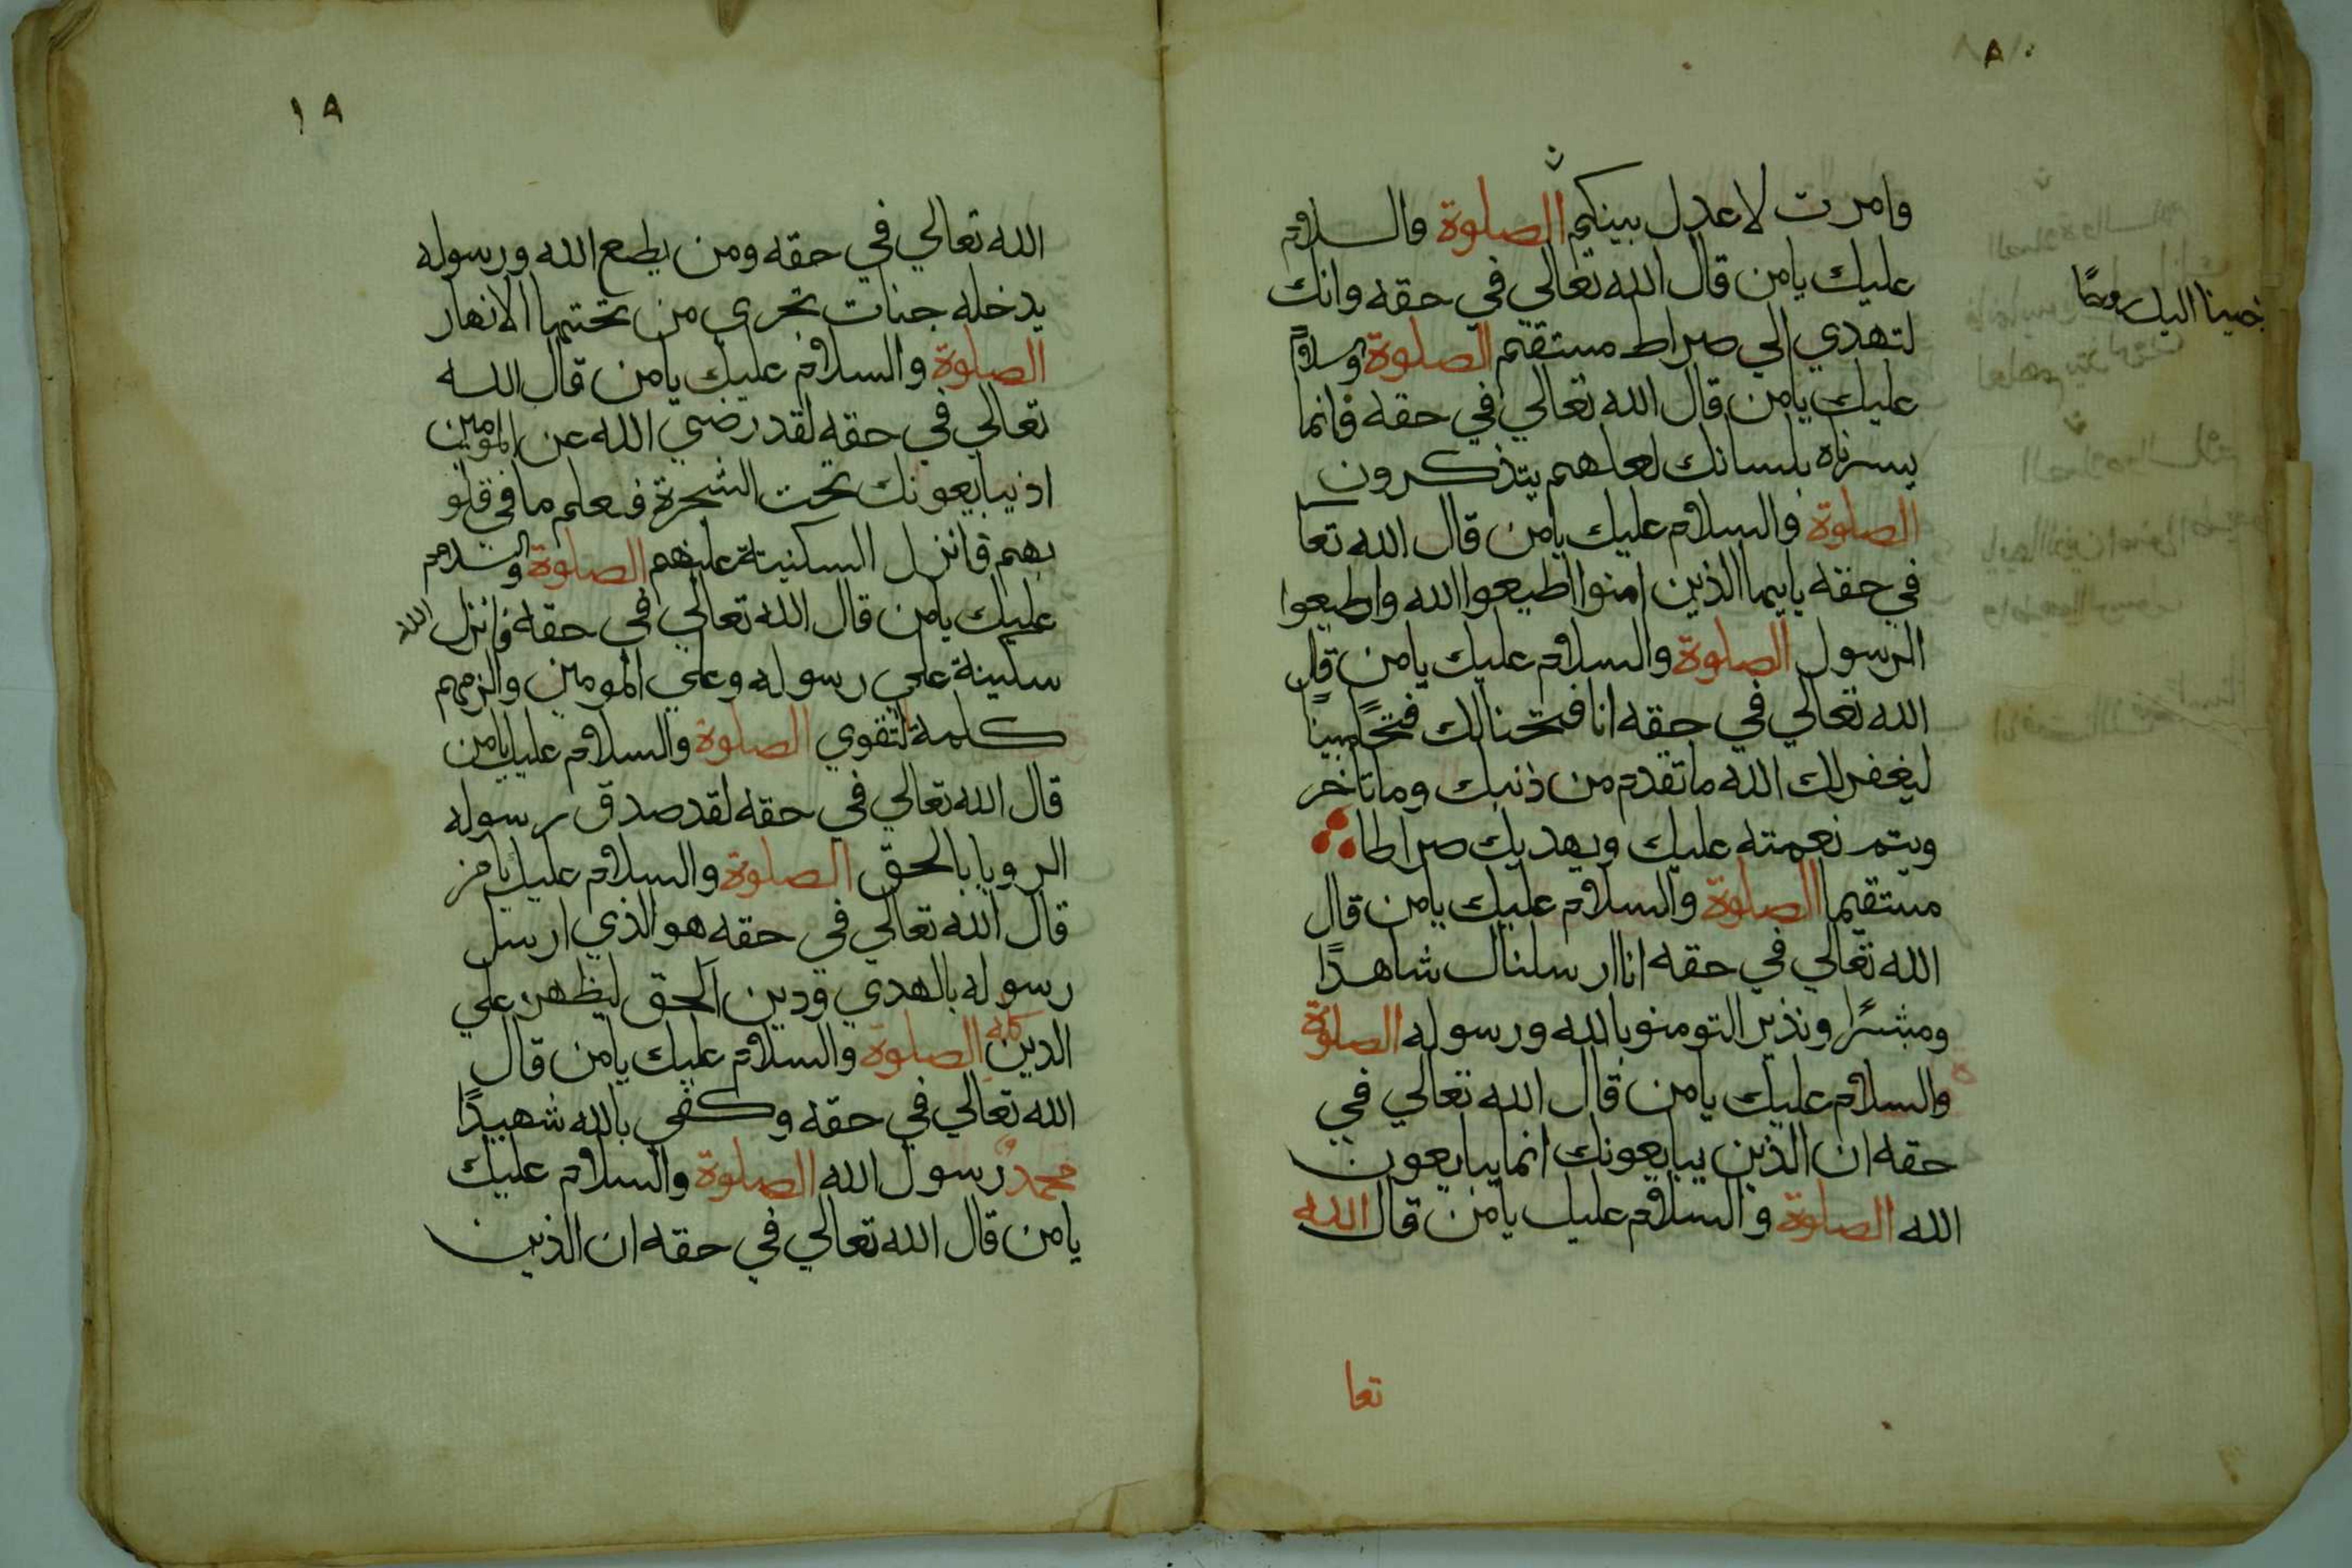 وامرت لاعدل بينكم الصلوة والسلام
عليك يامن قال الله تعالي في حقه وانك
لتهدي الي صراط مستقيم الصلوة والسلام
عليك يامن قال الله تعالي في حقه فانما
يسرناه بلسانك لعلهم يتذكرون
الصلوة والسلام عليك يامن قال الله تعا
في حقه ياايها الذين امنوا اطيعوا الله واطيعوا
الرسول الصلوة والسلام عليك يامن قال
الله تعالي في حقه انا فتحنا لك فتحًا مبينًا
ليغفر لك الله ما تقدم من ذنبك وما تاخر
ويتم نعمته عليك ويهديك صراطا
مستقيما الصلوة والسلام عليك يامن قال
الله تعالي في حقه انا ارسلناك شاهدًا
ومبشرًا ونذيرا لتومنو بالله ورسوله الصلوة
والسلام عليك يامن قال الله تعالي في
حقه ان الذين يبايعونك انما يبايعون
الله الصلوة والسلام عليك يامن قال الله
تعا
١٩
الله تعالي في حقه ومن يطع الله ورسوله
يدخله جنات تجري من تحتها الانهار
الصلوة والسلام عليك يامن قال الله
تعالي في حقه لقد رضي الله عن المومنين
اذ يبايعونك تحت الشجرة فعلم ما في قلو
بهم فانزل السكينة عليهم الصلوة والسلام
عليك يامن قال الله تعالي في حقه فانزل الله
سكينة علي رسوله وعلي المومنين والزمهم
كلمة التقوي الصلوة والسلام عليك يامن
قال الله تعالي في حقه لقد صدق رسوله
الرويا بالحق الصلوة والسلام عليك يامن
قال الله تعالي في حقه هو الذي ارسل
رسوله بالهدي ودين الحق ليظهره علي
الدين كله الصلوة والسلام عليك يامن قال
الله تعالي في حقه وكفي بالله شهيدًا
محمدٌ رسول الله الصلوة والسلام عليك
يامن قال الله تعالي في حقه ان الذين